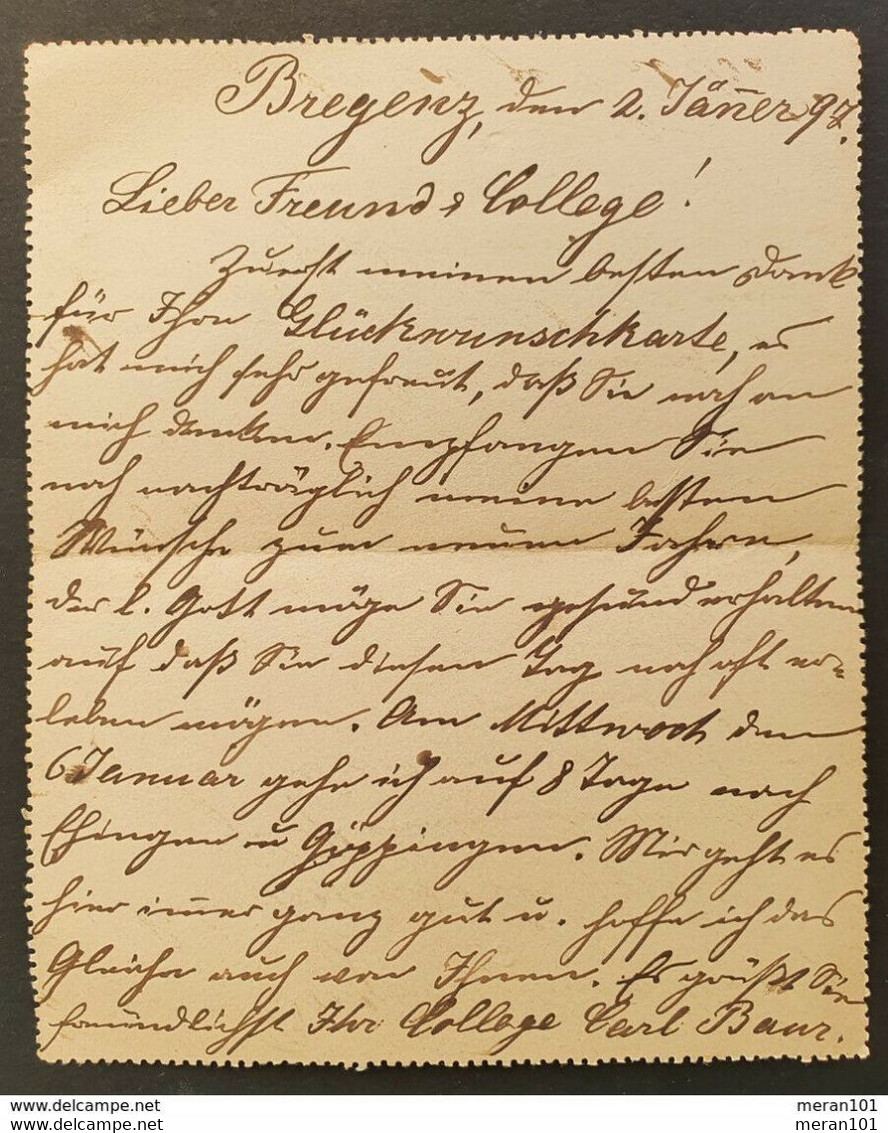 Bregenz, den 2. Jäner 97.
Lieber Freund & College!
Zuerst meinen besten Dank
für Ihre Glückwunschkarte, es
hat mich sehr gefreut, daß Sie noch an
mich denken. Empfangen Sie
noch nachträglich meine besten
Wünsche zum neuen Jahre,
der l. Gott möge Sie gesund erhalten
auf daß Sie diesen Tag noch oft er=
leben mögen. Am Mittwoch den
6 Januar gehe ich auf 8 Tage nach
Ehingen u Göppingen. Mir geht es
hier immer ganz gut u. hoffe ich das
Gleiche auch von Ihnen. Es grüßt Sie
freundlichst Ihr College Carl Baur.
meran101
meran101